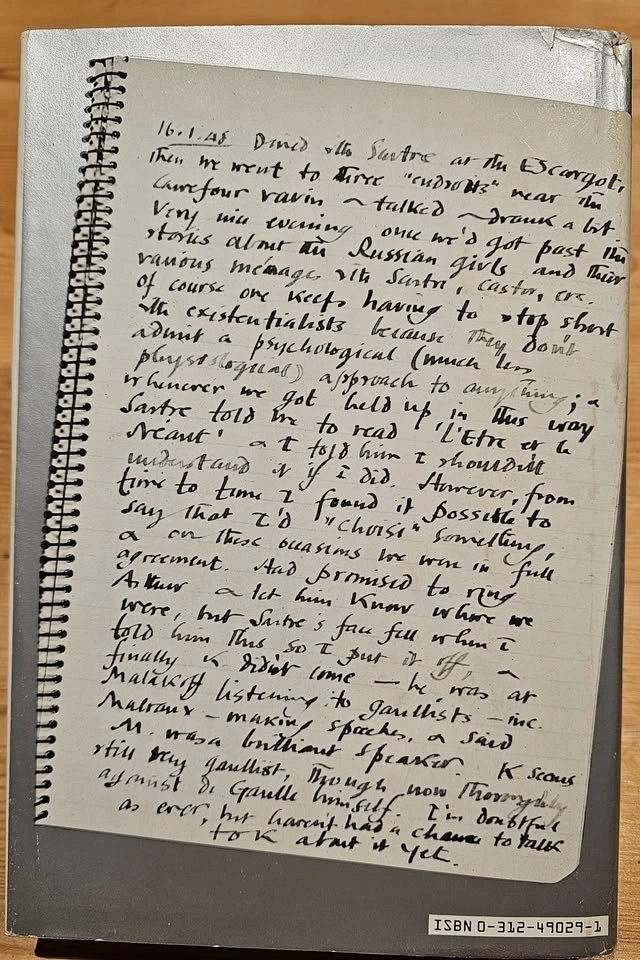 16.1.48 Dined with Sartre at the Escargot,
then we went to three "endroits" near the
carrefour vavin ~ talked ~ drank a bit.
Very nice evening once we'd got past the
stories about the Russian girls and their
various ménages with Sartre, Castor, etc.
Of course one keeps having to stop short
with existentialists because they don't
admit a psychological (much less
physiological) approach to anything; &
whenever we got held up in this way
Sartre told me to read 'L'Etre et le
Néant' & I told him I shouldn't
understand it if I did. However, from
time to time I found it possible to
say that I'd "choisi" something,
& on these occasions we were in full
agreement. Had promised to ring
Arthur & let him know where we
were, but Sartre's face fell when I
told him this so I put it off, &
finally K. didn't come — he was at
Malakoff listening to gaullists — inc.
Malraux — making speeches, & said
M. was a brilliant speaker. K seems
still very gaullist, though now thoroughly
against de Gaulle himself. I'm doubtful
as ever, but haven't had a chance to talk
to K about it yet.
ISBN 0-312-49029-1